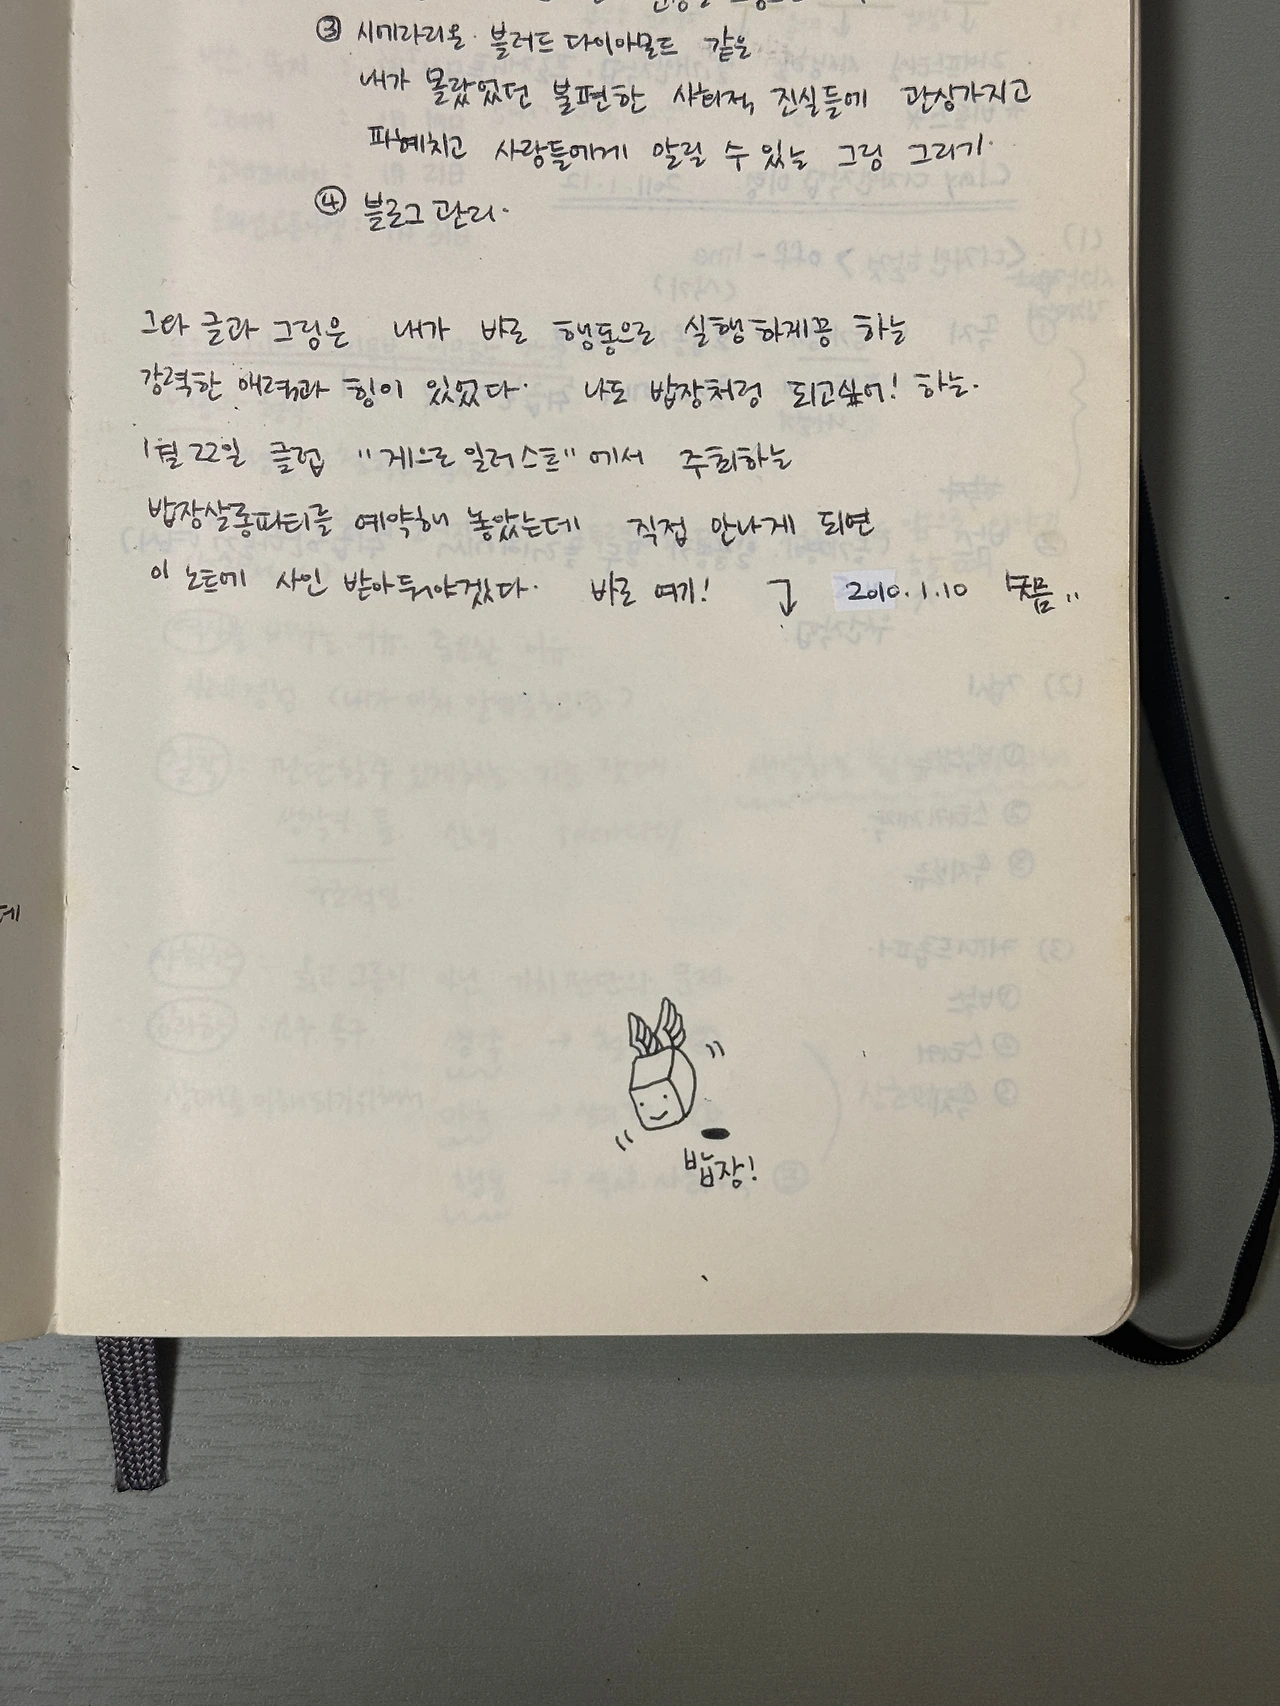 ③ 시에라리온. 블러드 다이아몬드 같은
내가 몰랐었던 불편한 사회적, 진실들에 관심가지고
파헤치고 사람들에게 알릴 수 있는 그림 그리기.
④ 블로그 관리.
그의 글과 그림은 내가 바로 행동으로 실행하게끔 하는
강력한 매력과 힘이 있었다. 나도 밥장처럼 되고싶어! 하는.
1월 22일 클럽 "게으로 일러스트"에서 주최하는
밥장살롱파티를 예약해 놓았는데 직접 만나게 되면
이 노트에 사인 받아둬야겠다. 바로 여기! 2010.1.10
데
밥장!